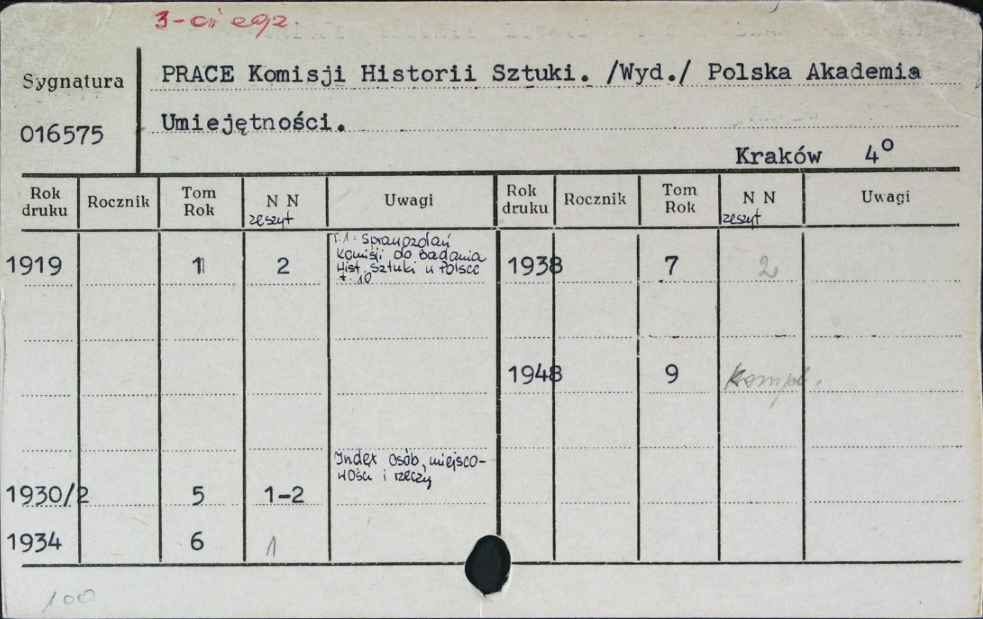 3-ci egz.
Sygnatura
016575
PRACE Komisji Historii Sztuki. /Wyd./ Polska Akademia
Umiejętności.
Kraków 4°
Rok druku Rocznik Tom Rok N N zeszyt Uwagi Rok druku Rocznik Tom Rok N N zeszyt Uwagi
T.1. Sprawozdań
Komisji do Badania
Hist. Sztuki w Polsce
t. 10
1919 1 2 1938 7 2
1948 9 kompl.
Index osób, miejsco-
wości i rzeczy
1930/2 5 1-2
1934 6 1
100